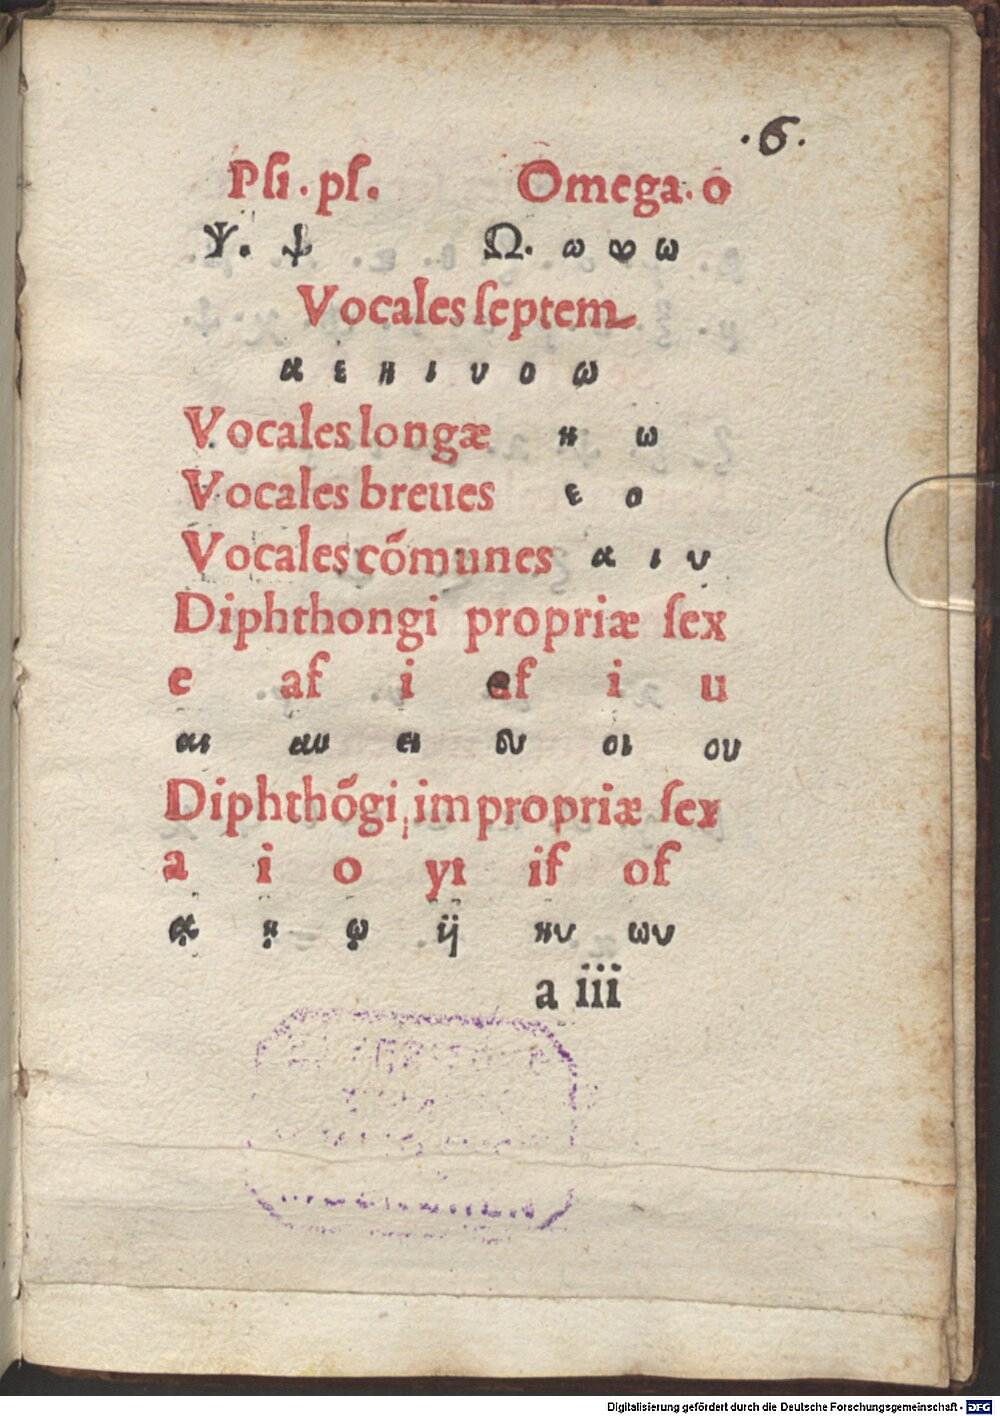 .6.
Pſi. pſ. Omega. o
Ψ. ψ Ω. ω ω ω
Vocales ſeptem
α ε η ι υ ο ω
Vocales longæ η ω
Vocales breues ε ο
Vocales cómunes α ι υ
Diphthongi propriæ ſex
e af i ef i u
αι αυ ει ευ οι ου
Diphthõgi impropriæ ſex
a i o yi if of
ᾳ ῃ ῳ υι ηυ ωυ
a iii
Digitalisierung gefördert durch die Deutsche Forschungsgemeinschaft - DFG